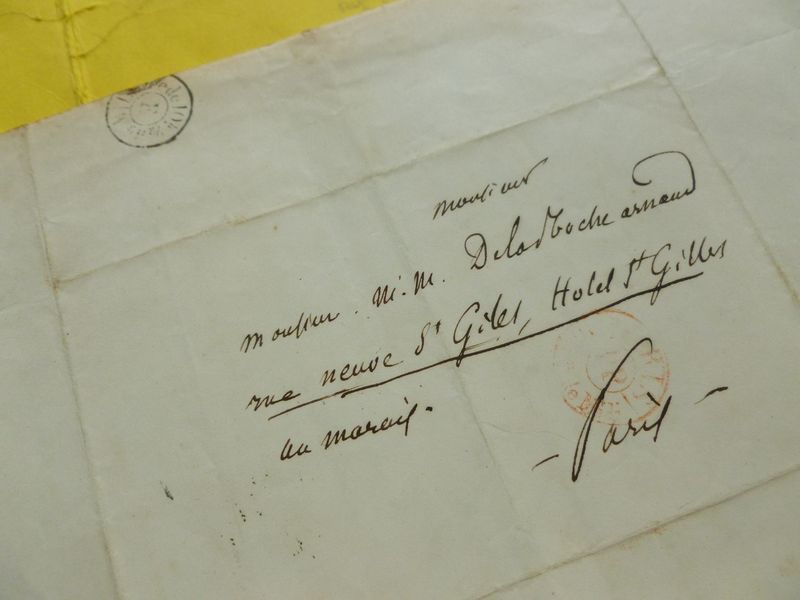 monsieur
monsieur. M. M. Delaroche arnaud
rue neuve St Giles, Hotel St Gilles
au marais.
– Paris –